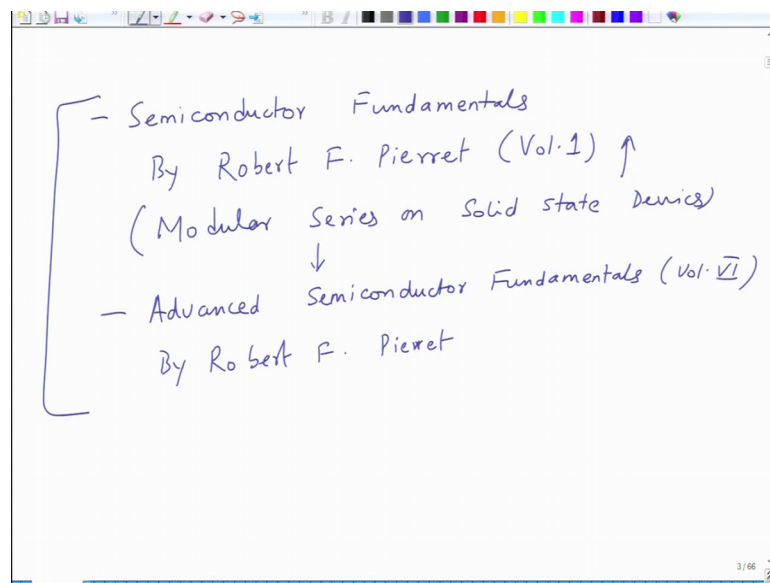 - Semiconductor Fundamentals
By Robert F. Pierret (Vol.1) ↑
(Modular Series on Solid State Devices)
↓
- Advanced Semiconductor Fundamentals (Vol. VI)
By Robert F. Pierret
3/66